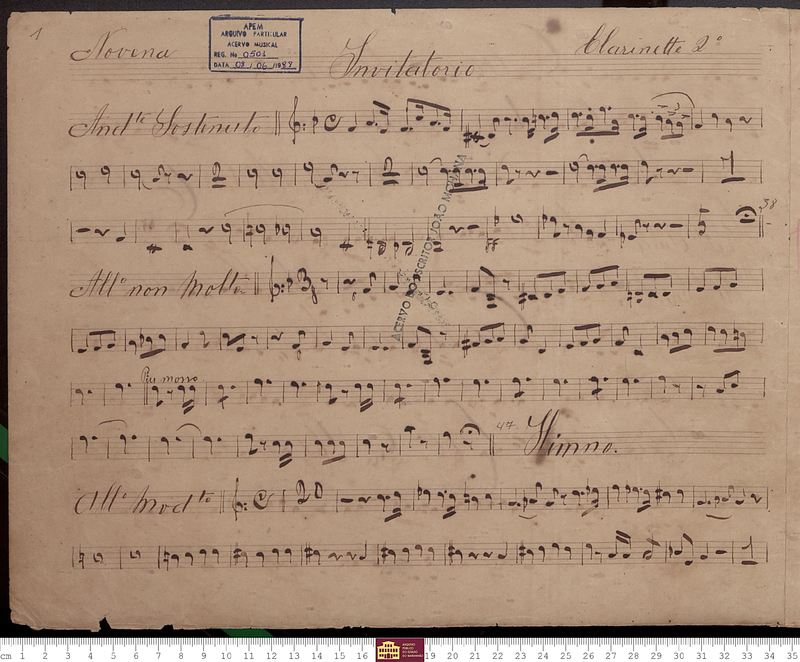 1
Novina
APEM
ARQUIVO PARTICULAR
ACERVO MUSICAL
REG. No 0501
DATA 08 / 06 /1999
Invitatorio
Clarinette 2º
And.te Sostenuto
38
All.o non molto
Piu mosso
47
Himno.
All.o Mod.to
20
cm 1 2 3 4 5 6 7 8 9 10 11 12 13 14 15 16 19 20 21 22 23 24 25 26 27 28 29 30 31 32 33 34 35